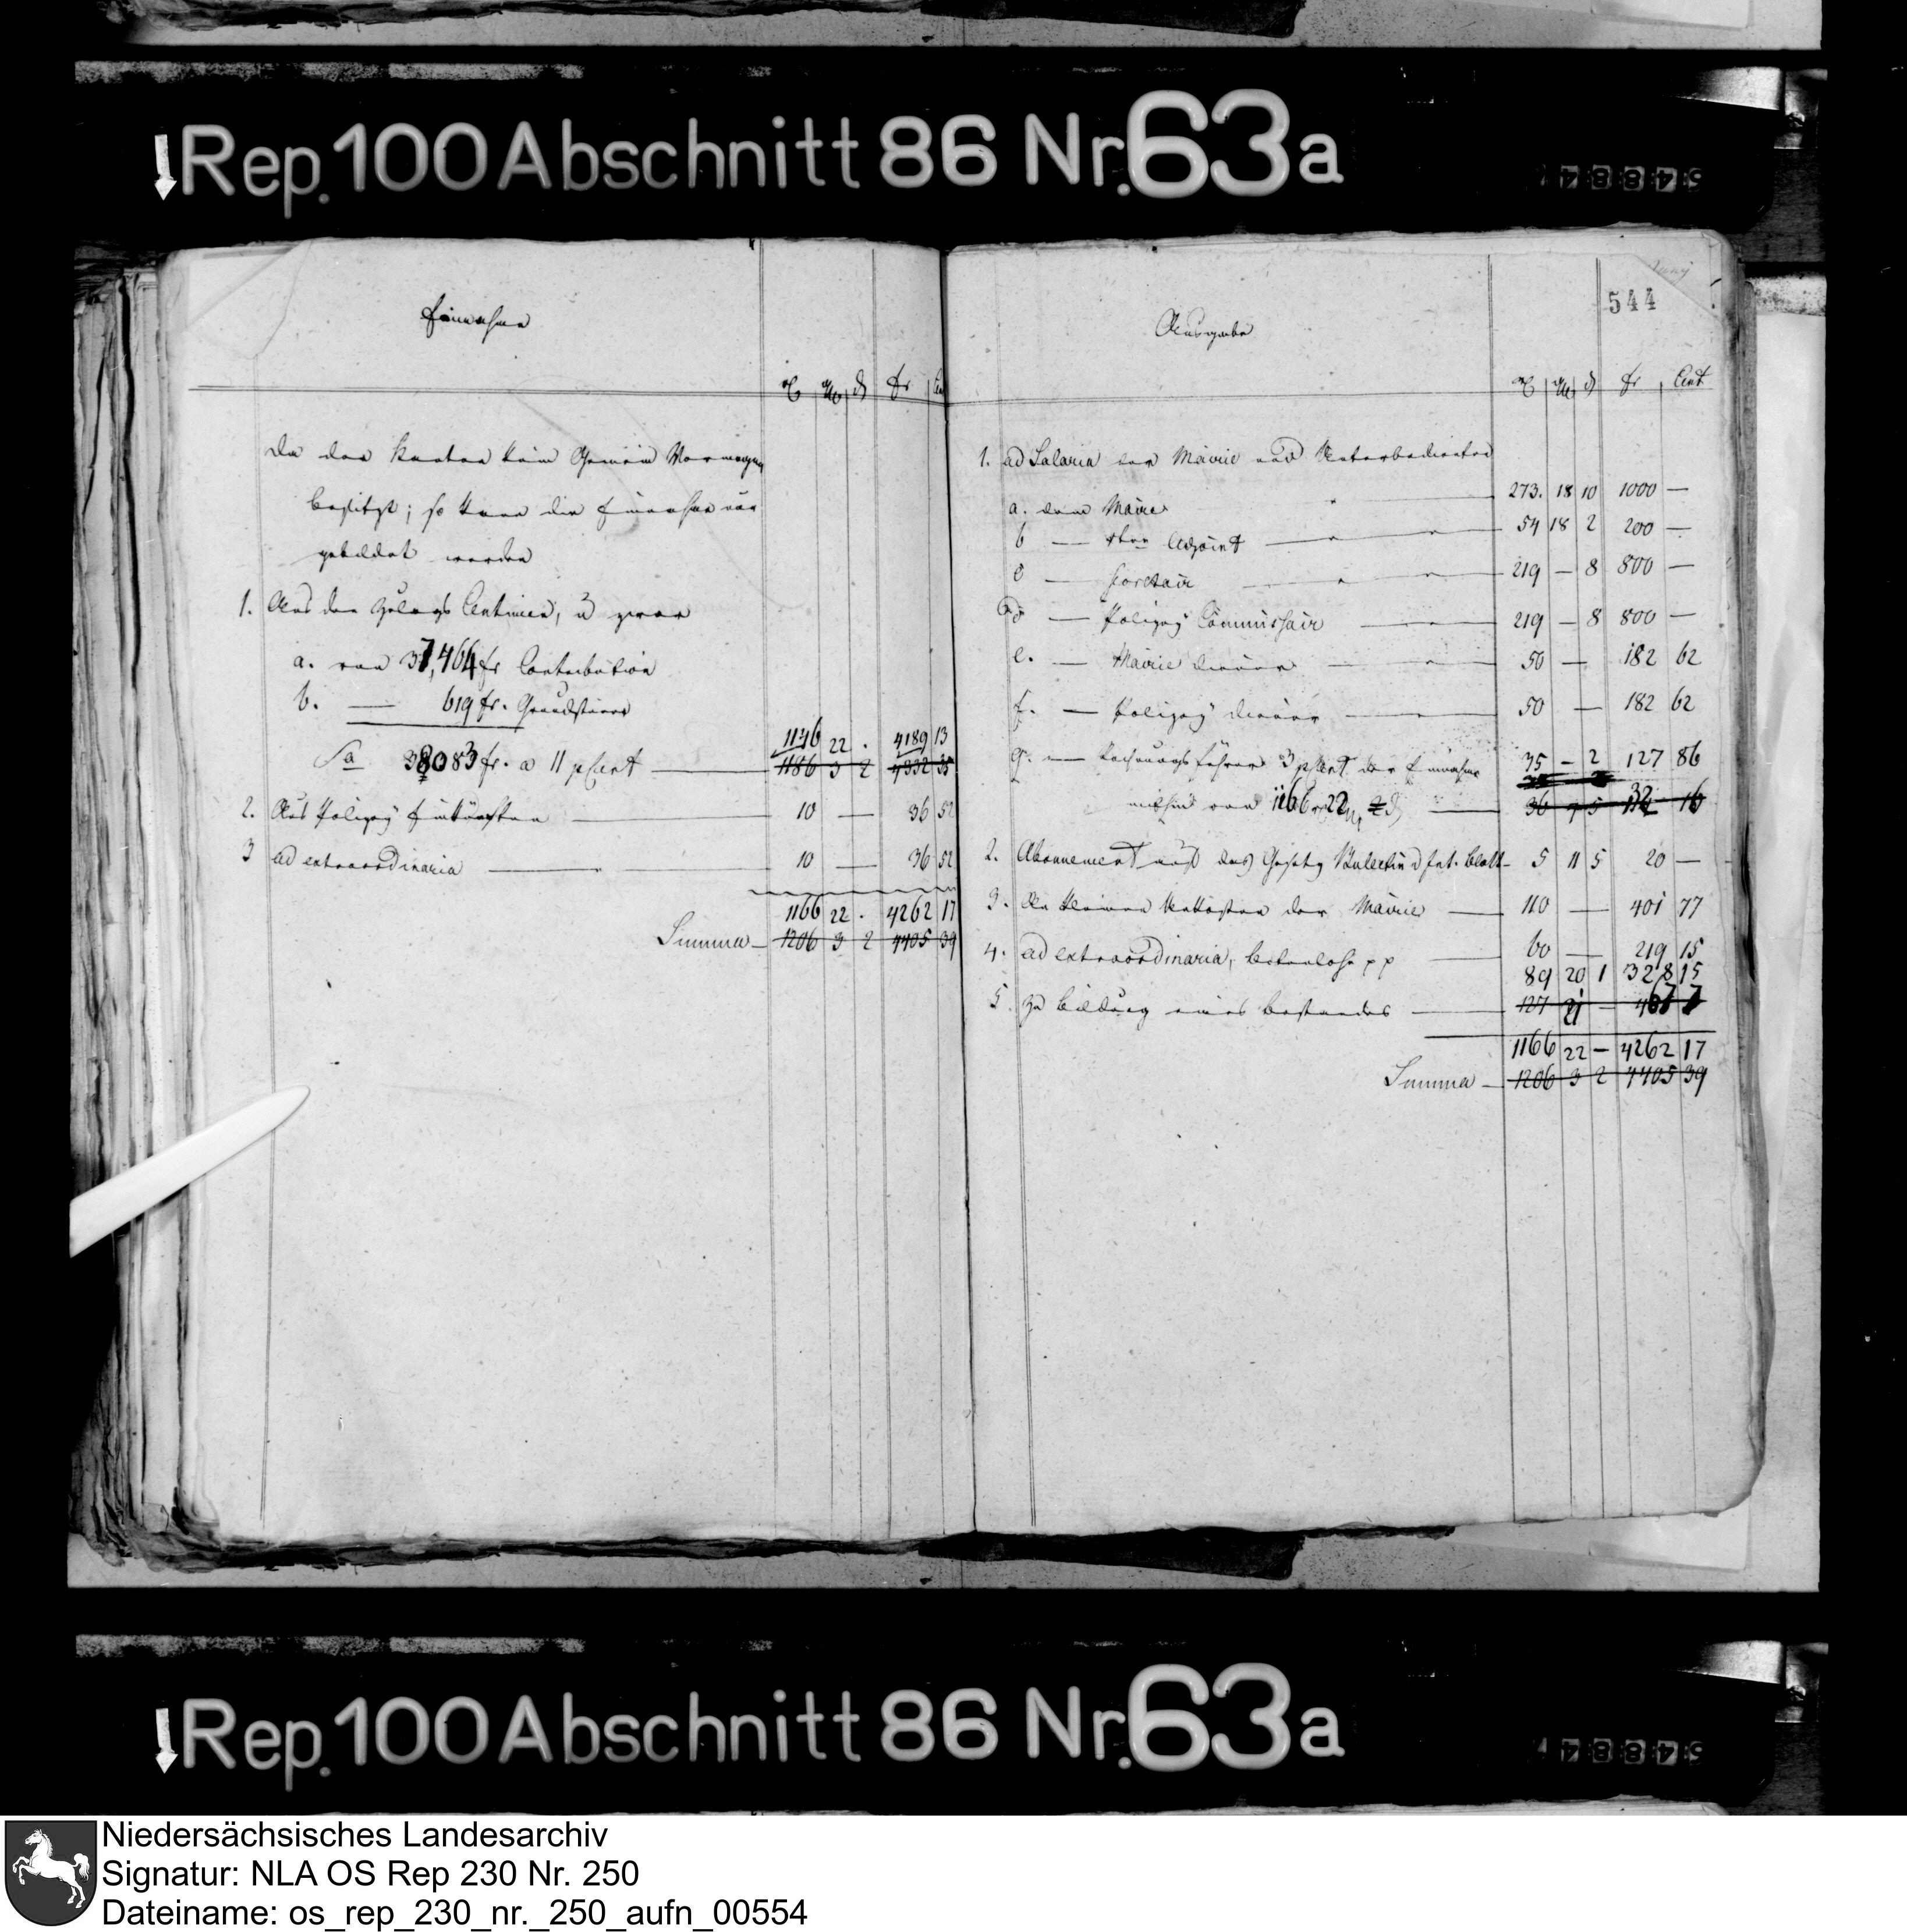 Rep. 100 Abschnitt 86 Nr. 63a
544
Einnahme
fr
Da der Canton kein Gemein Vermoegen
besitzt; so kann die Einnahme nur
gebildet werden
1. Aus den Zulags Centimen, u zwar
a. von 37,464 fr Contribution
b. — 619 fr. Grundsteuer
1146 22 . 4189 13
Sa 38083 fr. a 11 pCent — 1186 3 2 4332 35
2. Aus Polizey Einkünften — 10 — 36 52
3 ad extraordinaria — 10 — 36 52
1166 22 . 4262 17
Summa — 1206 3 2 4405 39
Ausgabe
fr Cent
1. ad Salaria der Mairie und Unterbediente
a. dem Maire 273. 18 10 1000 —
b — 1ten Adjoint — 54 18 2 200 —
c — Secretair — 219 — 8 800 —
d — Polizey Commissair — 219 — 8 800 —
e. — Mairie diener — 50 — 182 62
f. — Polizey diener — 50 — 182 62
g. — Rechnungsführer 3 pCent der Einnahme 35 — 2 127 86
mithin von 1166 22
2. Abonnement auf das Gesetz Bulletin u Int. Blatt — 5 11 5 20 —
3. An kleinen Unkosten der Mairie — 110 — 401 77
4. ad extraordinaria, botenlohn pp — 60 — 219 15
89 20 1 328 15
5. Zu bildung eines bestandes — 127 21 —
1166 22 — 4262 17
Summa — 1206 3 2 4405 39
Rep. 100 Abschnitt 86 Nr. 63a
Niedersächsisches Landesarchiv
Signatur: NLA OS Rep 230 Nr. 250
Dateiname: os_rep_230_nr._250_aufn_00554